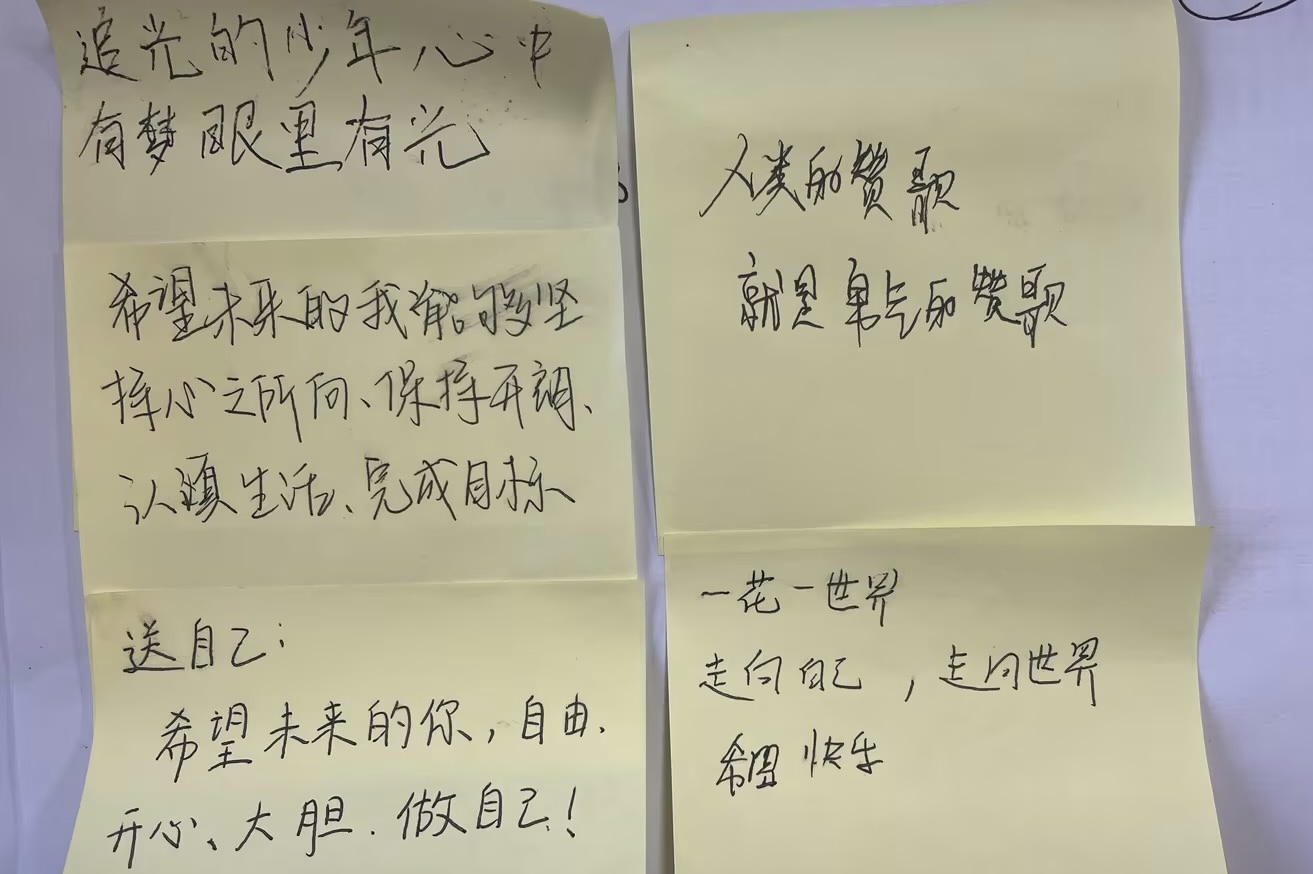 追光的少年心中
有梦眼里有光
希望未来的我能够坚
持心之所向、保持开朗、
认真生活、完成目标
送自己:
希望未来的你,自由.
开心、大胆.做自己!
人类的赞歌
就是勇气的赞歌
一花一世界
走向自己,走向世界
希望快乐